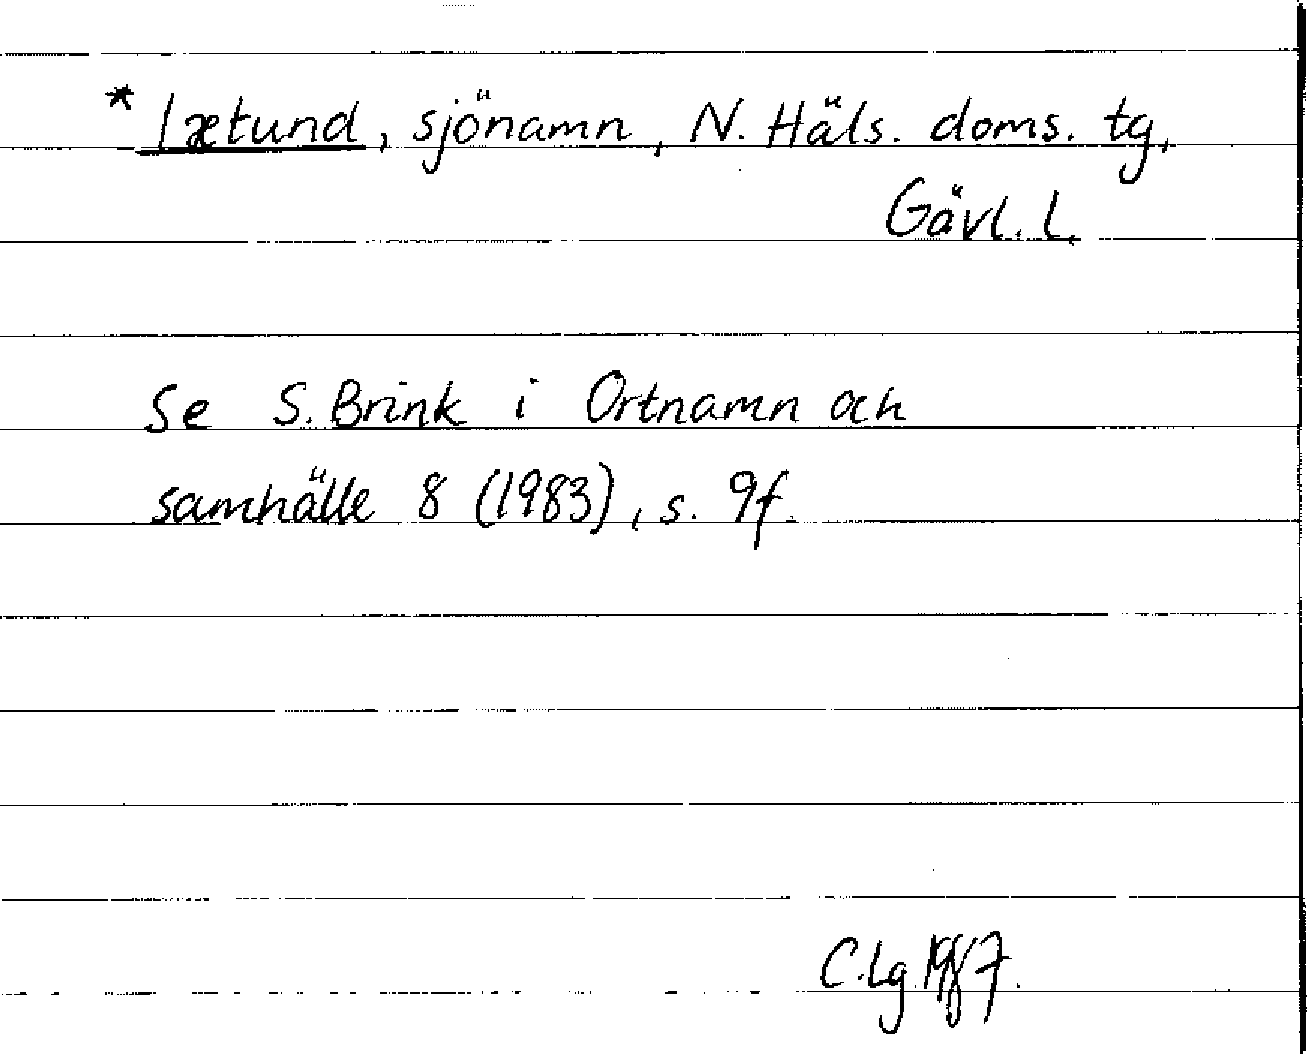 * lætund, sjönamn, N. Häls. doms. tg,
Gävl. l.
Se S. Brink i Ortnamn och
samhälle 8 (1983), s. 9f.
C.Lg. 1987.